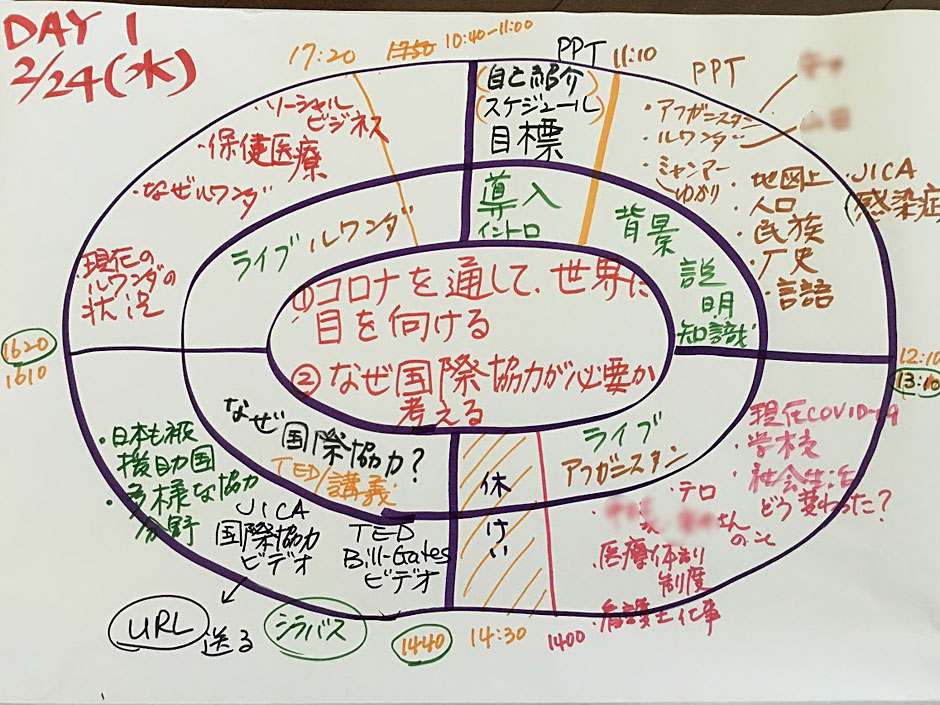 DAY 1
2/24(水)
17:20
1750
10:40-11:00
PPT
11:10
PPT
(自己紹介
スケジュール)
目標
導入
イントロ
・アフガニスタン
・ルワンダ
・ミャンマー
ゆかり
・地図上
・人口
・民族
・厂史
・言語
・JICA
(感染症
背景
説明
知識
12:10
13:10
・ソーシャル
ビジネス
・保健医療
・なぜルワンダ
・現在の
ルワンダの
状況
ライブ ルワンダ
①コロナを通して、世界に
目を向ける
②なぜ国際協力が必要か
考える
1620
1610
なぜ
国際協力?
TED/講義
・日本も被
援助国
・多様な協力
分野
JICA
国際協力
ビデオ
TED
Bill-Gates
ビデオ
URL
送る
シラバス
休
けい
1440
14:30
1400
ライブ
アフガニスタン
現在COVID-19
・学校
・社会生活
どう変わった?
・テロ
さん
のこと
・医療体制
制度
・看護士仕事